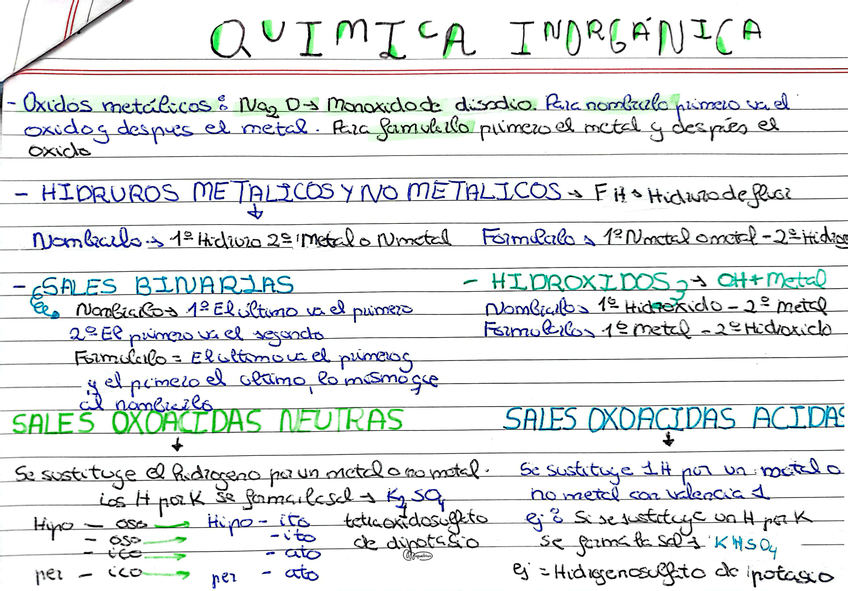 QUIMICA INORGÁNICA
- Oxidos metálicos: Na2O → Monoxido de disodio. Para nombrarlo primero va el
oxido y despues el metal. Para formularlo primero el metal y despues el
oxido
- HIDRUROS METALICOS Y NO METALICOS → FH → Hidruro de fluor
Nombrarlo → 1º Hidruro 2º Metal o Nmetal Formularlo → 1º Nmetal o metal - 2º Hidrog
- SALES BINARIAS
Nombrarlo → 1º El último va el primero
2º El primero va el segundo
Formularlo = El ultimo va el primero y
y el primero el ultimo, lo mismo que
al nombrarlo
- HIDROXIDOS → OH + Metal
Nombrarlo → 1º Hidroxido - 2º metal
Formularlo → 1º metal - 2º Hidroxido
SALES OXOACIDAS NEUTRAS
Se sustituye el hidrogeno por un metal o no metal.
los H por K se forma la sal → K2SO4
Hipo - oso → Hipo - ito
- oso → - ito
- ico → - ato
per - ico → per - ato
tetraoxidosulfato
de dipotasio
SALES OXOACIDAS ACIDAS
Se sustituye 1 H por un metal o
no metal con valencia 1
ej: Si se sustituye un H por K
se forma la sal → KHSO4
ej = Hidrogenosulfato de potasio